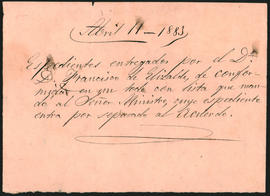 Abril 11 - 1883
Espedientes entregados por el Dr.
D. Francisco de Elizalde, de confor-
midad en un todo con lista que man-
dó al Señor Ministro, cuyo espediente
entra por separado al Acuerdo.